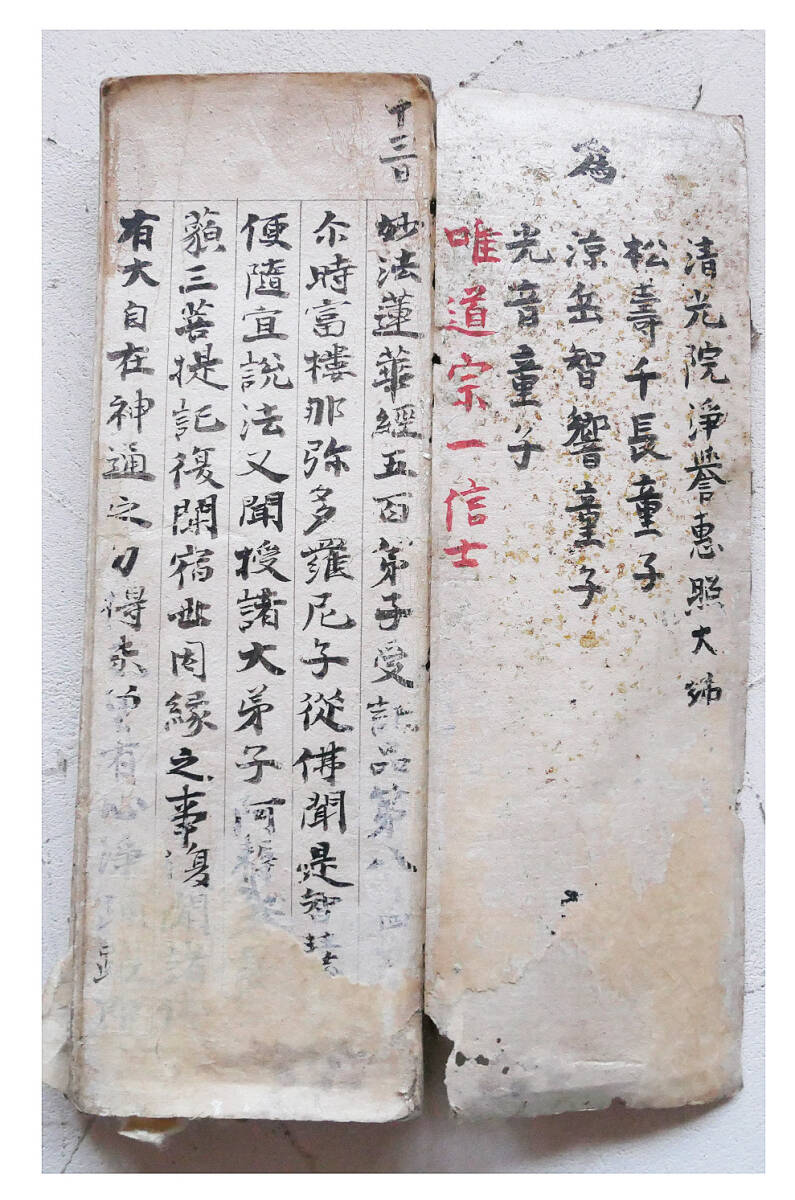 為
清光院淨誉惠照大姉
松壽千長童子
涼岳智響童子
光音童子
唯道宗一信士
十三日
妙法蓮華經五百弟子受記品第八
尒時富樓那弥多羅尼子從佛聞是智慧
便隨宜說法又聞授諸大弟子阿耨
藐三菩提記復聞宿世因緣之事復聞諸
有大自在神通之力得未曾有心淨踊